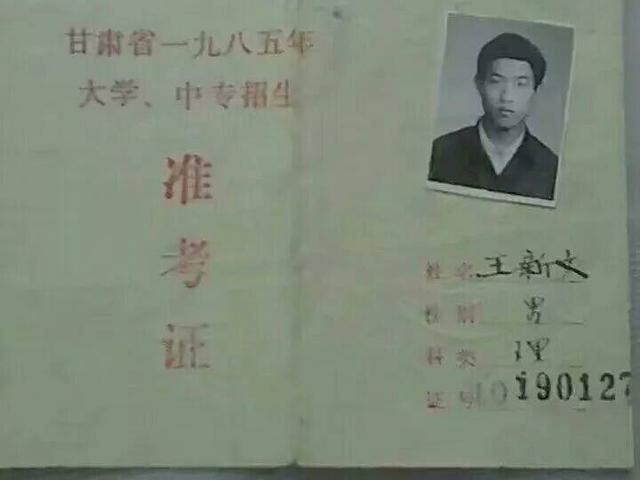 甘肃省一九八五年
大学、中专招生
准
考
证
姓名 王新文
性别 男
科类 理
证号 190127